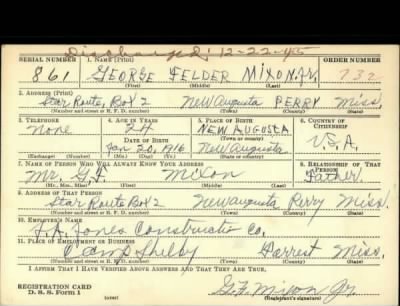 Discharged: 12-22-45
SERIAL NUMBER 1. NAME (Print) ORDER NUMBER
861 GEORGE FELDER MIXON, Jr. 732
(First) (Middle) (Last)
2. ADDRESS (Print)
Star Route, Box 2 New Augusta PERRY Miss.
(Number and street or R. F. D. number) (Town) (County) (State)
3. TELEPHONE 4. AGE IN YEARS 5. PLACE OF BIRTH 6. COUNTRY OF CITIZENSHIP
None 24 NEW AUGUSTA
DATE OF BIRTH (Town or county)
Jan 20, 1916 New Augusta U.S.A.
(Exchange) (Number) (Mo.) (Day) (Yr.) (State or country)
7. NAME OF PERSON WHO WILL ALWAYS KNOW YOUR ADDRESS 8. RELATIONSHIP OF THAT PERSON
Mr. G. F. Mixon Father
(Mr., Mrs., Miss) (First) (Middle) (Last)
9. ADDRESS OF THAT PERSON
Star Route Box 2 New Augusta Perry Miss.
(Number and street or R. F. D. number) (Town) (County) (State)
10. EMPLOYER'S NAME
J.A. Jones Constructio Co.
11. PLACE OF EMPLOYMENT OR BUSINESS
Camp Shelby Forrest Miss.
(Number and street or R. F. D. number) (Town) (County) (State)
I AFFIRM THAT I HAVE VERIFIED ABOVE ANSWERS AND THAT THEY ARE TRUE.
REGISTRATION CARD
D. S. S. Form 1 (over) G. F. Mixon Jr.
(Registrant's signature)